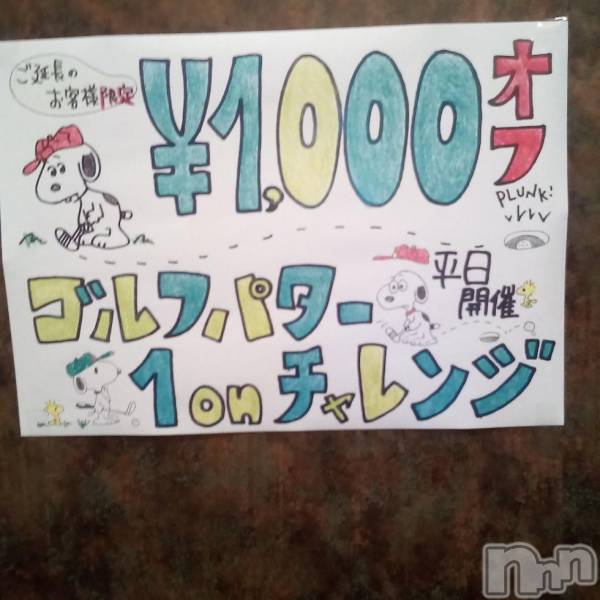 ご延長の
お客様限定
¥1,000
オフ
PLUNK!
平日
開催
ゴルフパター
1onチャレンジ
nnn